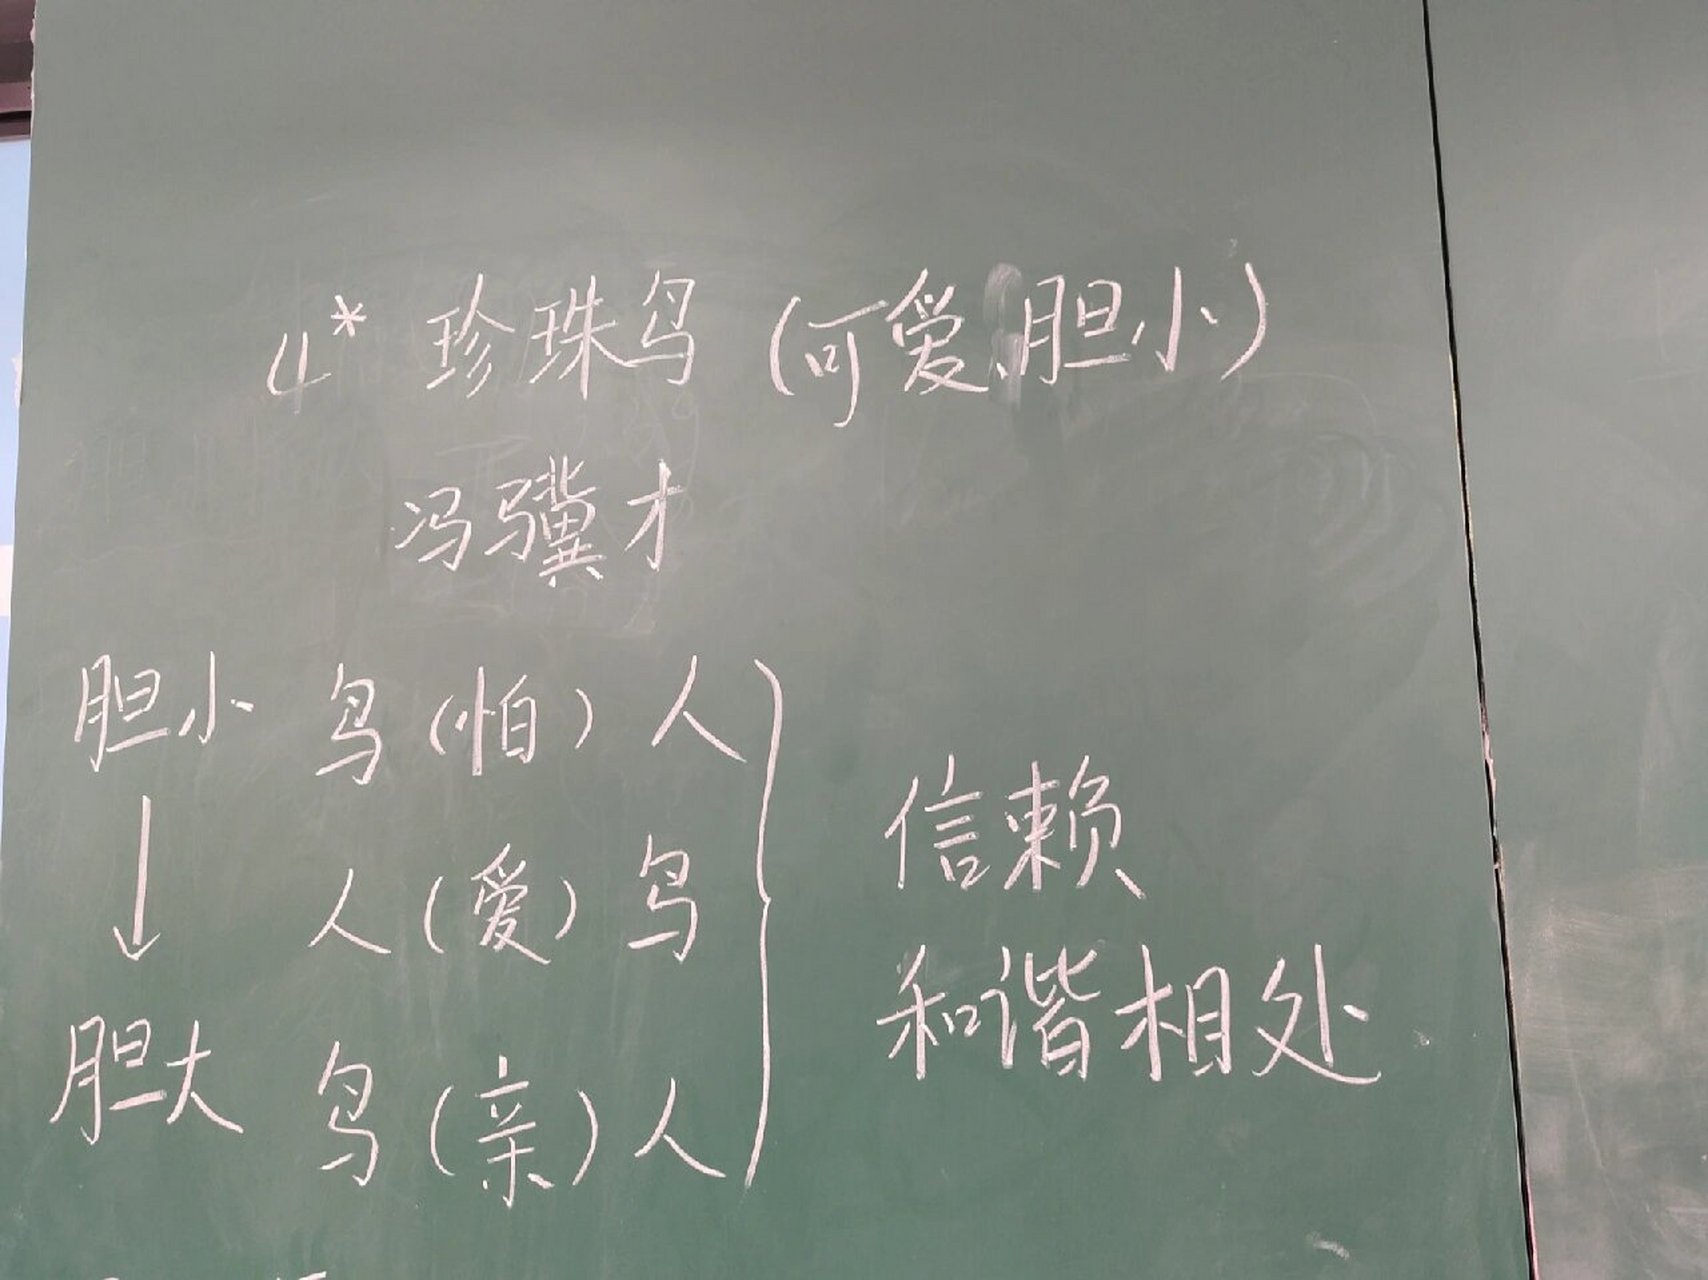 4* 珍珠鸟 (可爱、胆小)
冯骥才
胆小 鸟(怕)人
人(爱)鸟
胆大 鸟(亲)人
信赖
和谐相处